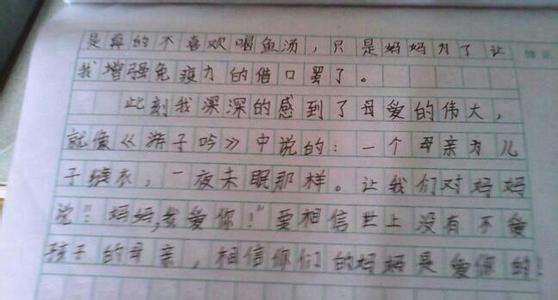 是真的不喜欢喝鱼汤，只是妈妈为了让
我增强免疫力的借口罢了。
此刻我深深的感到了母爱的伟大，
就像《游子吟》中说的：一个母亲为儿
子缝衣，一夜未眠那样。让我们对妈妈
说："妈妈，我爱你！"要相信世上没有不爱
孩子的母亲，相信你们的妈妈是爱你的！